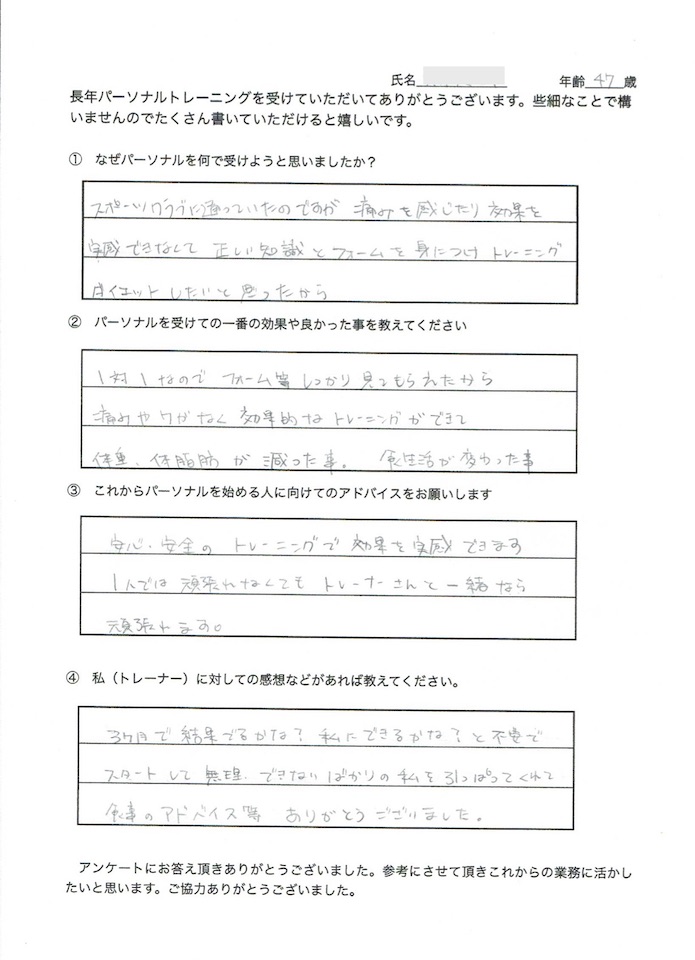 氏名 年齢 47 歳
長年パーソナルトレーニングを受けていただいてありがとうございます。些細なことで構
いませんのでたくさん書いていただけると嬉しいです。
① なぜパーソナルを何で受けようと思いましたか？
スポーツクラブに通っていたのですが 痛みを感じたり 効果を
実感できなくて 正しい知識とフォームを身につけ トレーニング
ダイエットしたいと思ったから
② パーソナルを受けての一番の効果や良かった事を教えてください
1対1なので フォーム等しっかり見てもらえたから
痛みやケガなく 効果的なトレーニングができて
体重、体脂肪が減った事。 食生活が変わった事
③ これからパーソナルを始める人に向けてのアドバイスをお願いします
安心・安全の トレーニングで 効果を実感できます
1人では 頑張れなくても トレーナーさんと一緒なら
頑張れます。
④ 私（トレーナー）に対しての感想などがあれば教えてください。
3ヶ月で 結果でるかな？ 私にできるかな？と不安で
スタートして 無理、できないばかりの私を引っぱってくれて
食事のアドバイス等 ありがとうございました。
アンケートにお答え頂きありがとうございました。参考にさせて頂きこれからの業務に活かし
たいと思います。ご協力ありがとうございました。